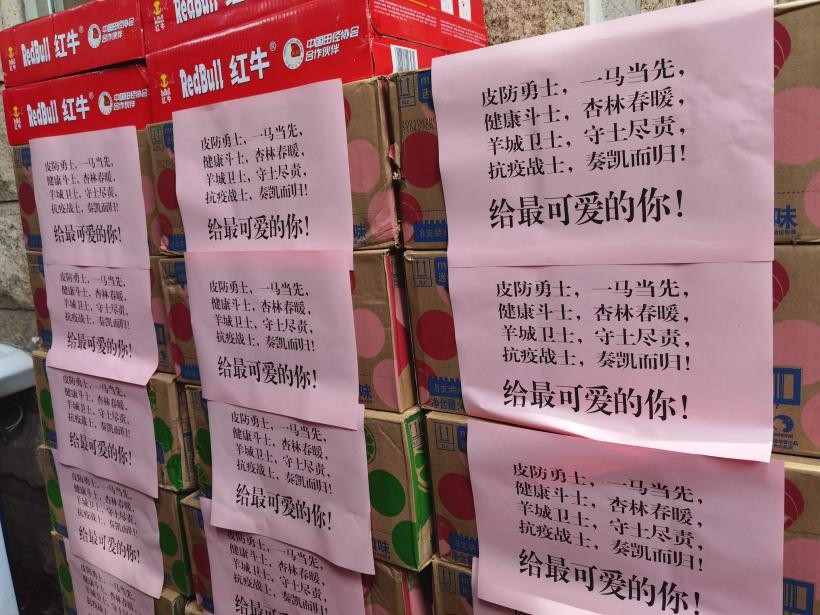 RedBull 红牛®
中国田径协会
合作伙伴
红牛
RedBull 红牛®
中国田径协会
合作伙伴
红牛
RedBull 红牛®
中国田径协会
合作伙伴
皮防勇士，一马当先，
健康斗士，杏林春暖，
羊城卫士，守土尽责，
抗疫战士，奏凯而归！
给最可爱的你！
皮防勇士，一马当先，
健康斗士，杏林春暖，
羊城卫士，守土尽责，
抗疫战士，奏凯而归！
给最可爱的你！
皮防勇士，一马当先，
健康斗士，杏林春暖，
羊城卫士，守土尽责，
抗疫战士，奏凯而归！
给最可爱的你！
味
8支装
皮防勇士，一马当先，
健康斗士，杏林春暖，
羊城卫士，守土尽责，
抗疫战士，奏凯而归！
给最可爱的你！
皮防勇士，一马当先，
健康斗士，杏林春暖，
羊城卫士，守土尽责，
抗疫战士，奏凯而归！
给最可爱的你！
皮防勇士，一马当先，
健康斗士，杏林春暖，
羊城卫士，守土尽责，
抗疫战士，奏凯而归！
给最可爱的你！
8支装
皮防勇士，一马当先，
健康斗士，杏林春暖，
羊城卫士，守土尽责，
抗疫战士，奏凯而归！
给最可爱的你！
皮防勇士，一马当先，
健康斗士，杏林春暖，
羊城卫士，守土尽责，
抗疫战士，奏凯而归！
给最可爱的你！
皮防勇士，一马当先，
健康斗士，杏林春暖，
羊城卫士，守土尽责，
抗疫战士，奏凯而归！
给最可爱的你！
味
皮防勇士，一马当先，
健康斗士，杏林春暖，
羊城卫士，守土尽责，
抗疫战士，奏凯而归！
给最可爱的你！
皮防勇士，一马当先，
健康斗士，杏林春暖，
羊城卫士，守土尽责，
抗疫战士，奏凯而归！